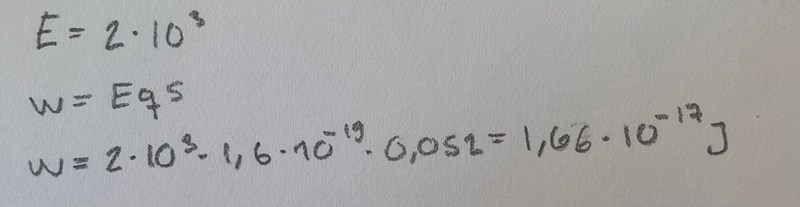 E = 2 · 10³
w = Eqs
w = 2 · 10³ · 1,6 · 10⁻¹⁹ · 0,052 = 1,66 · 10⁻¹⁷ J